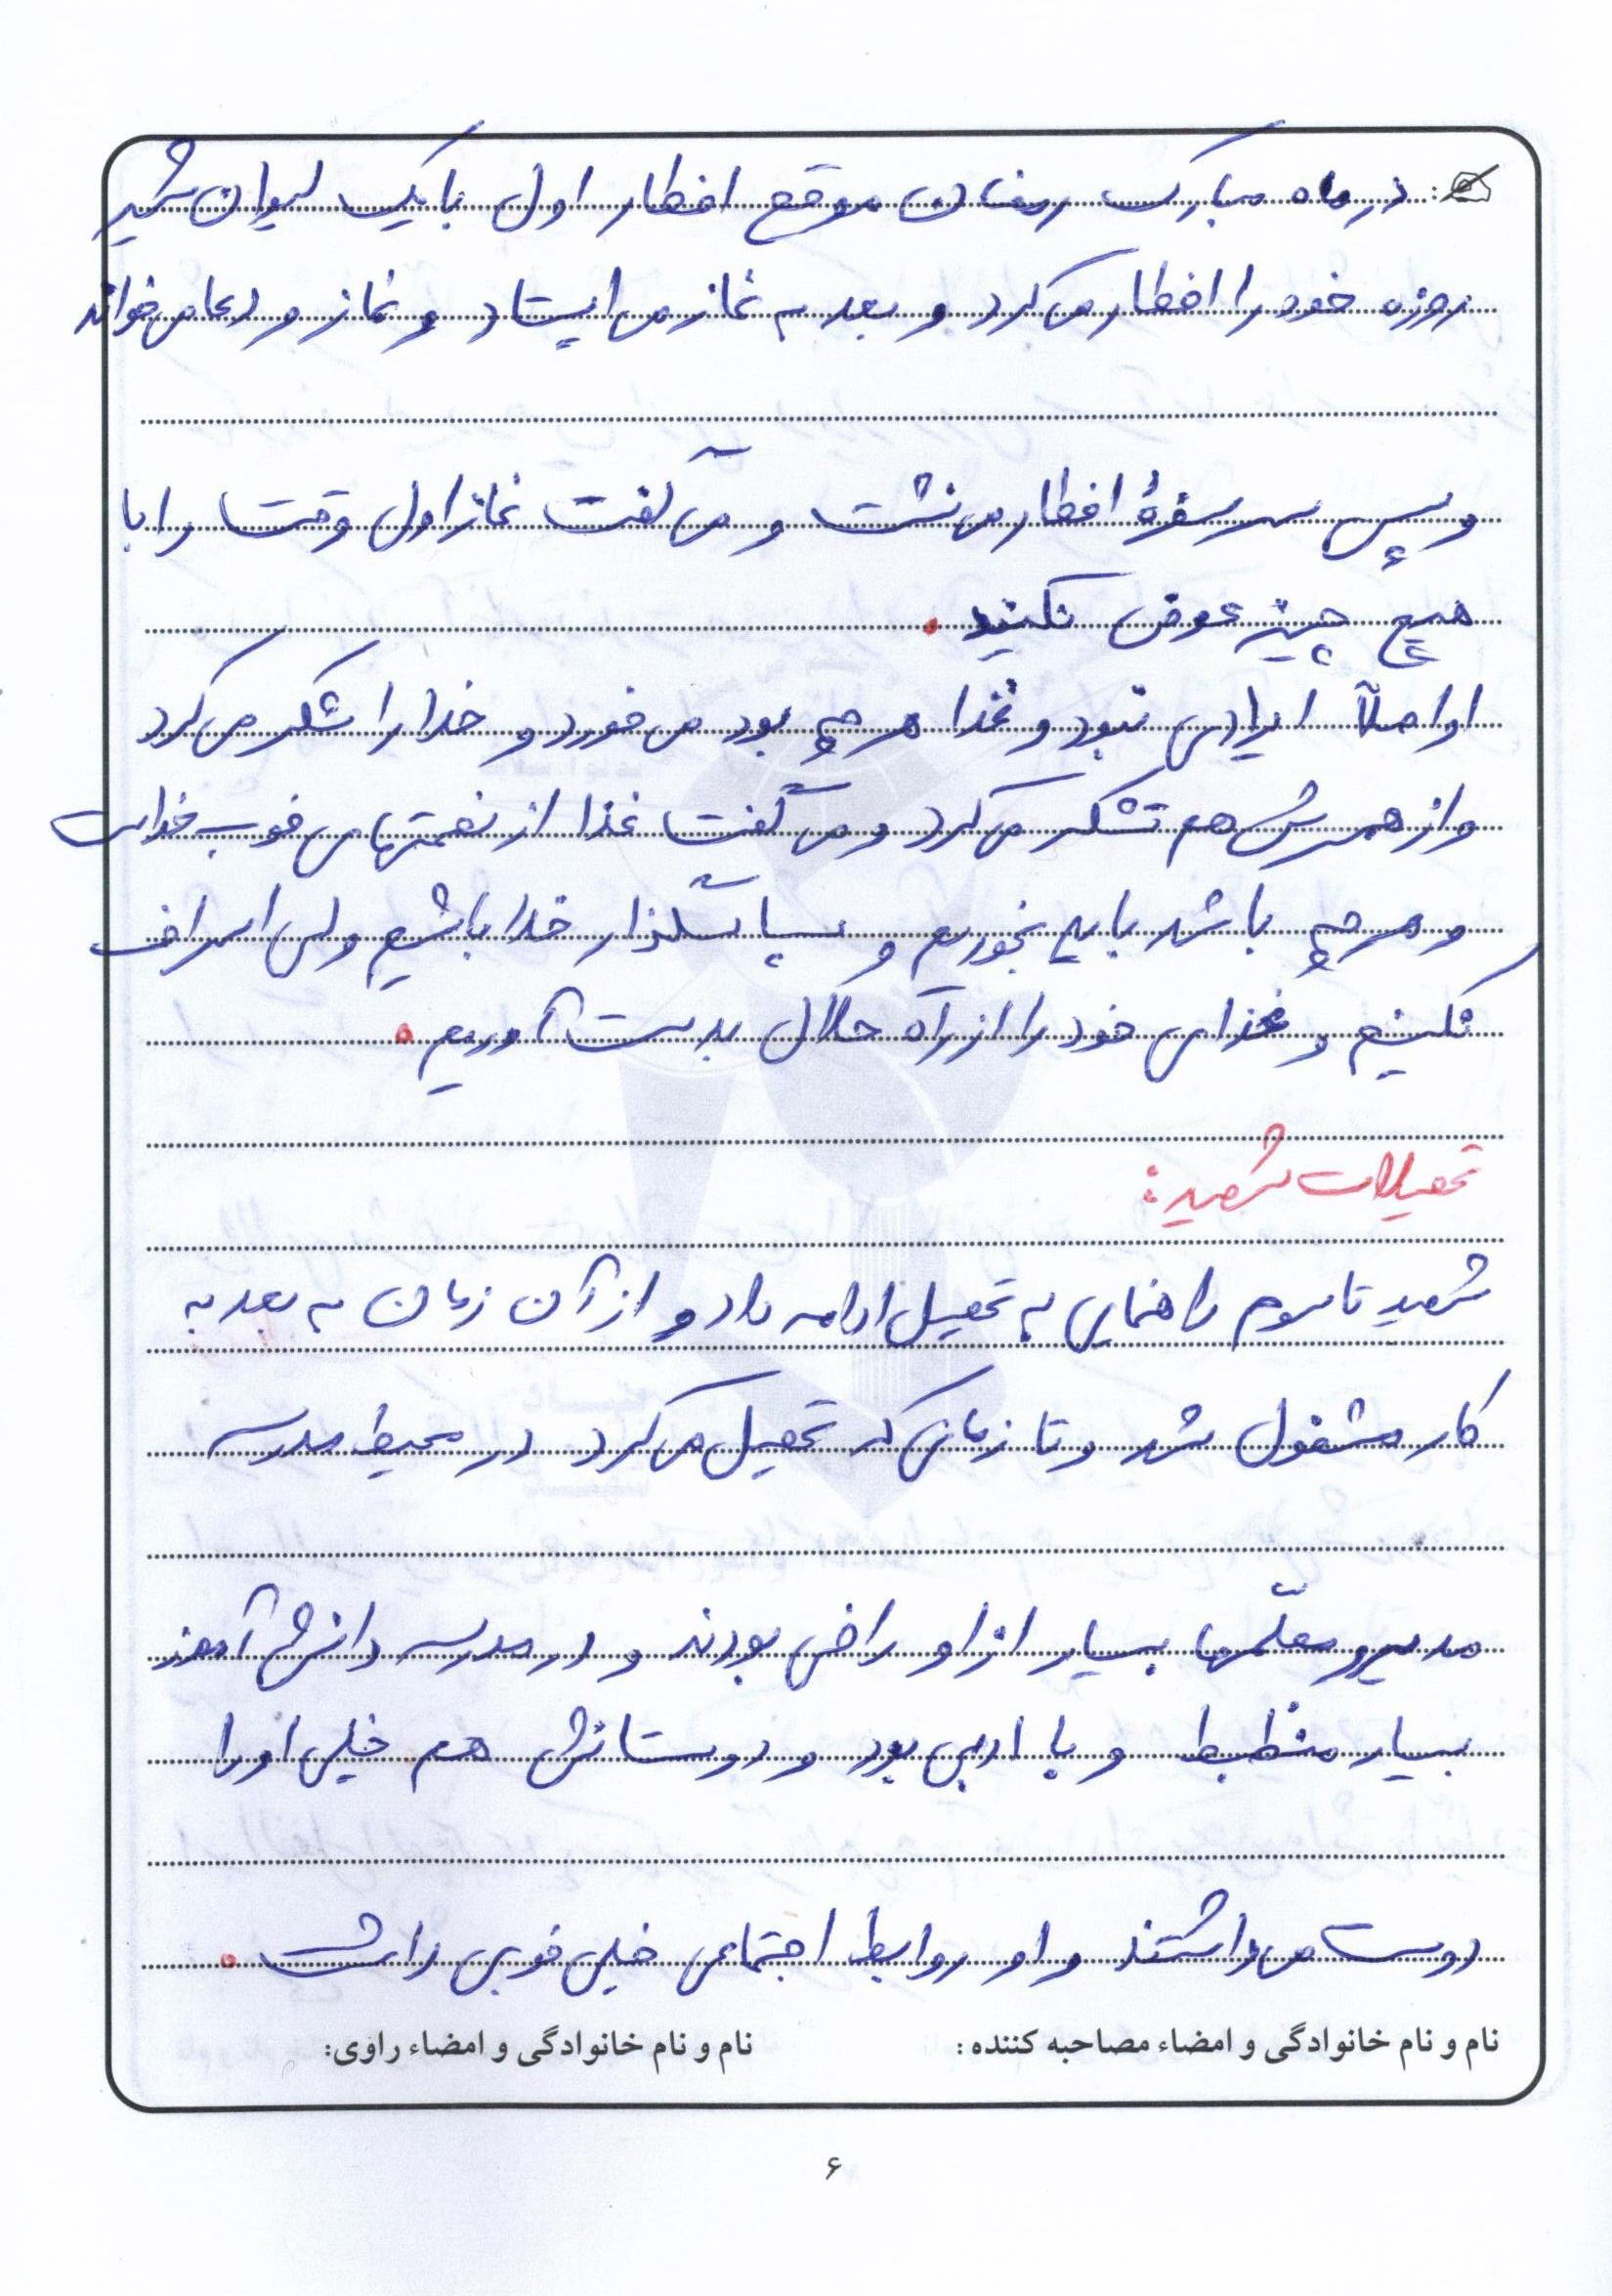 در ماه مبارک رمضان موقع افطار اول با یک لیوان شیر
روزه خود را افطار می کرد و بعد به نماز می ایستاد و نماز و دعا می خواند
و سپس سر سفرهٔ افطار می نشست و می گفت نماز اول وقت را با
هیچ چیز عوض نکنید.
او اصلاً ایرادی نبود و غذا هر چه بود می خورد و خدا را شکر می کرد
و از همسرش هم تشکر می کرد و می گفت غذا از نعمتهای خوب خداست
و هر چه باشد باید بخوریم و سپاسگذار خدا باشیم ولی اسراف
نکنیم و غذای خود را از راه حلال بدست آوریم.
تحصیلات شهید:
شهید تا سوم راهنمایی به تحصیل ادامه داد و از آن زمان به بعد به
کار مشغول شد و تا زمانی که تحصیل می کرد در محیط مدرسه
مدیر و معلّمها بسیار از او راضی بودند و در مدرسه دانش آموز
بسیار منظبط و با ادبی بود و دوستانش هم خیلی او را
دوست می داشتند و او روابط اجتماعی خیلی خوبی داشت.
نام و نام خانوادگی و امضاء مصاحبه کننده: نام و نام خانوادگی و امضاء راوی:
۶